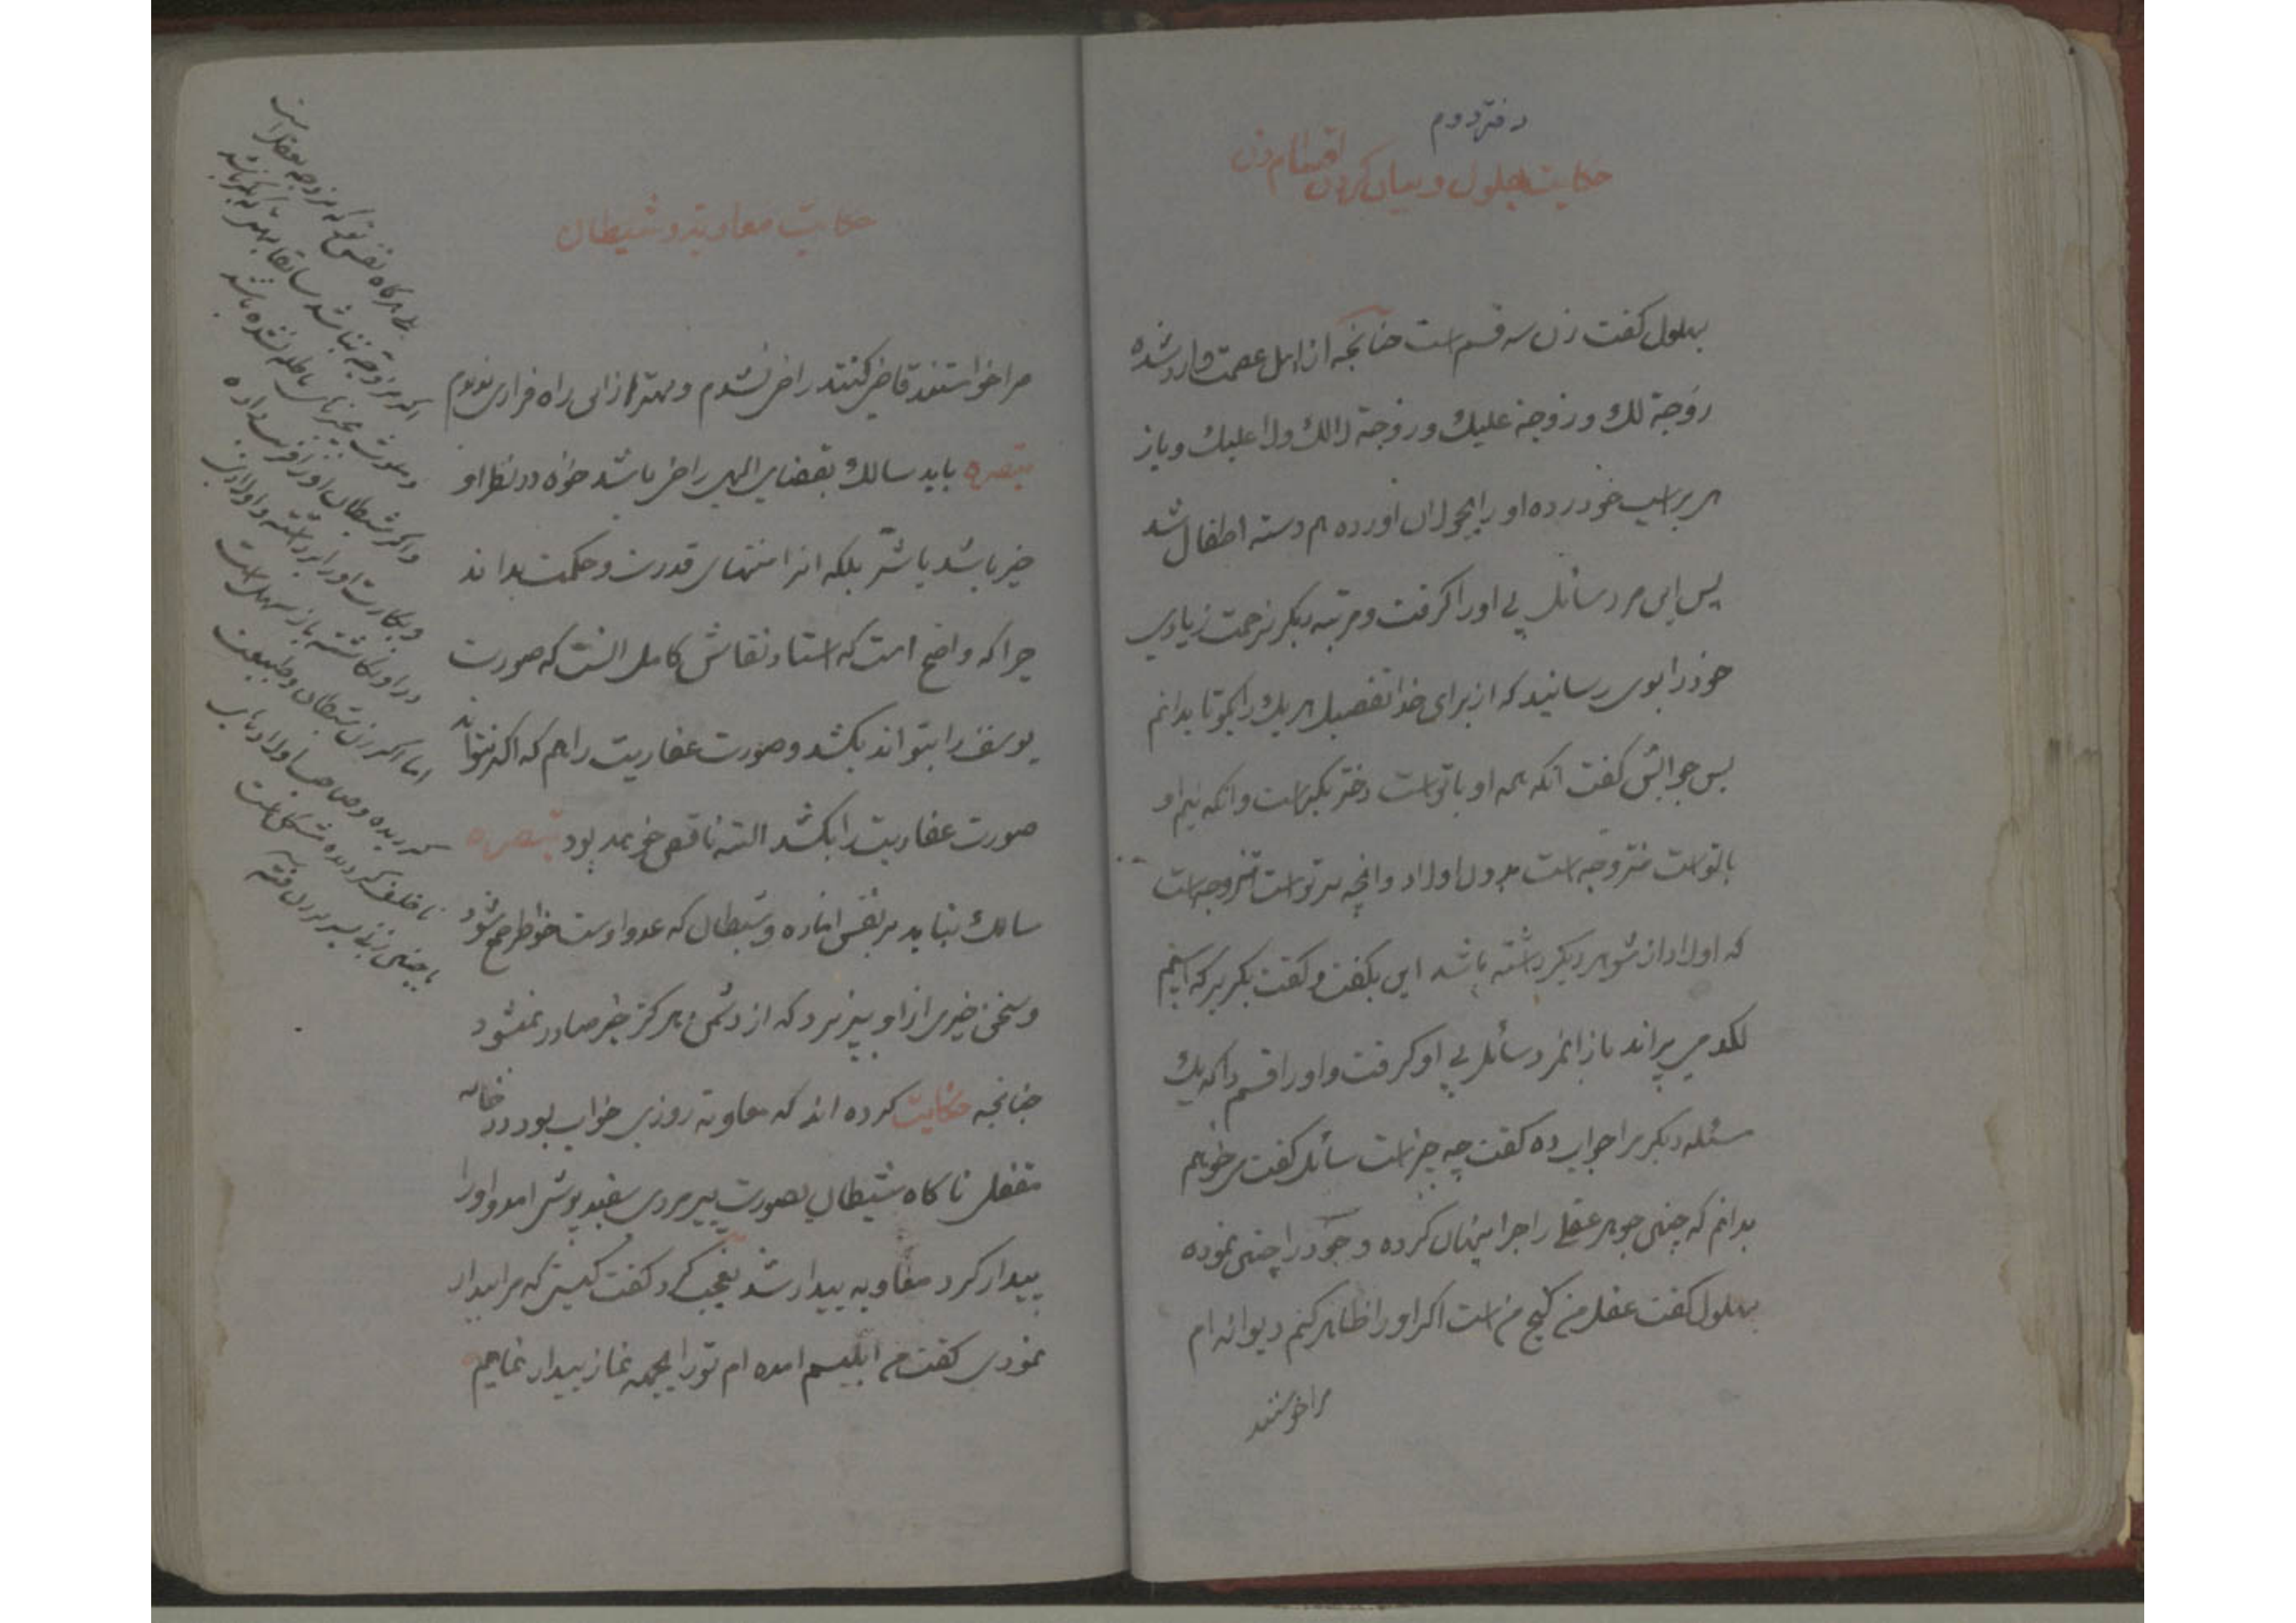 دفتر دوم
حکایت بهلول و بیان کردن اقسام زن
بهلول کفت زن سه قسم است چنانچه از اهل عصمت وارد شده
زوجة لك و زوجة علیك و زوجة لا لك ولا علیك و باز
هی بر اسب خود زده او را بجولان اورده هم دسته اطفال شد
پس این مرد سائل پی او را کرفت و مرتبه دیکر بزحمت زیادی
خود را بوی رسانید که از برای خدا تفصیل هر یك را بکو تا بدانم
پس جوابش کفت انکه همه او با توست دختر بکر است و انکه نیم او
با توست متزوجه است بدون اولاد و انچه بر توست متزوجه است
که اولاد از شوهر دیکر داشته باشد این بکفت و کفت بکریز که اسبم
لکد می پراند باز انمرد سائل پی او کرفت و او را قسم داد که یك
سئله دیکر مرا جواب ده کفت چه چیز است سائل کفت می خواهم
بدانم که چنین جوهر عقلی را چرا پنهان کرده و خود را چنین نموده
بهلول کفت عقل من کنج من است اکر او را ظاهر کنم دیوانه ام
مرا خواستند
حکایت معاویه و شیطان
مرا خواستند قاضی کنند راضی نشدم و بهتر از این راه فراری ندیدم
تبصره باید سالك بقضای الهی راضی باشد خواه در نظر او
خیر باشد یا شر بلکه انرا منتهای قدرت و حکمت بداند
چرا که واضح است که استاد نقاش کامل انست که صورت
یوسف را بتواند بکشد و صورت عفاریت را هم که اکر نتواند
صورت عفاریت را بکشد البته ناقص خواهد بود تبصره
سالك نباید بر نفس اماره و شیطان که عدو اوست خواطر جمع شود
و سخن خیری از او بپذیرد که از دشمن هرکز خیر صادر نمیشود
چنانچه حکایت کرده اند که معاویه روزی خواب بود در خانه
مقفل ناکاه شیطان بصورت پیرمردی سفید پوش امد و او را
بیدار کرد معاویه بیدار شد تعجب کرد کفت کیستی که مرا بیدار
نمودی کفت من ابلیسم امده ام تو را بجهه نماز بیدار نمایم
هرکاه نفس تو که بمنزوجه عقل است
اکر متزوجه نباشد سابقا بهتر که بکر باشد
و ملوث بخیزهای باطله نشده باشد
و اکر شیطان او را فریب داده
و بکارت او را برداشته و اولاد
در او نکاشته باز سهل است
اما اکر زن شیطان و طبیعت
کردیده و صاحب اولاد های
ناخلف کردیده مشکل است
با چنین زنی بسر بردن